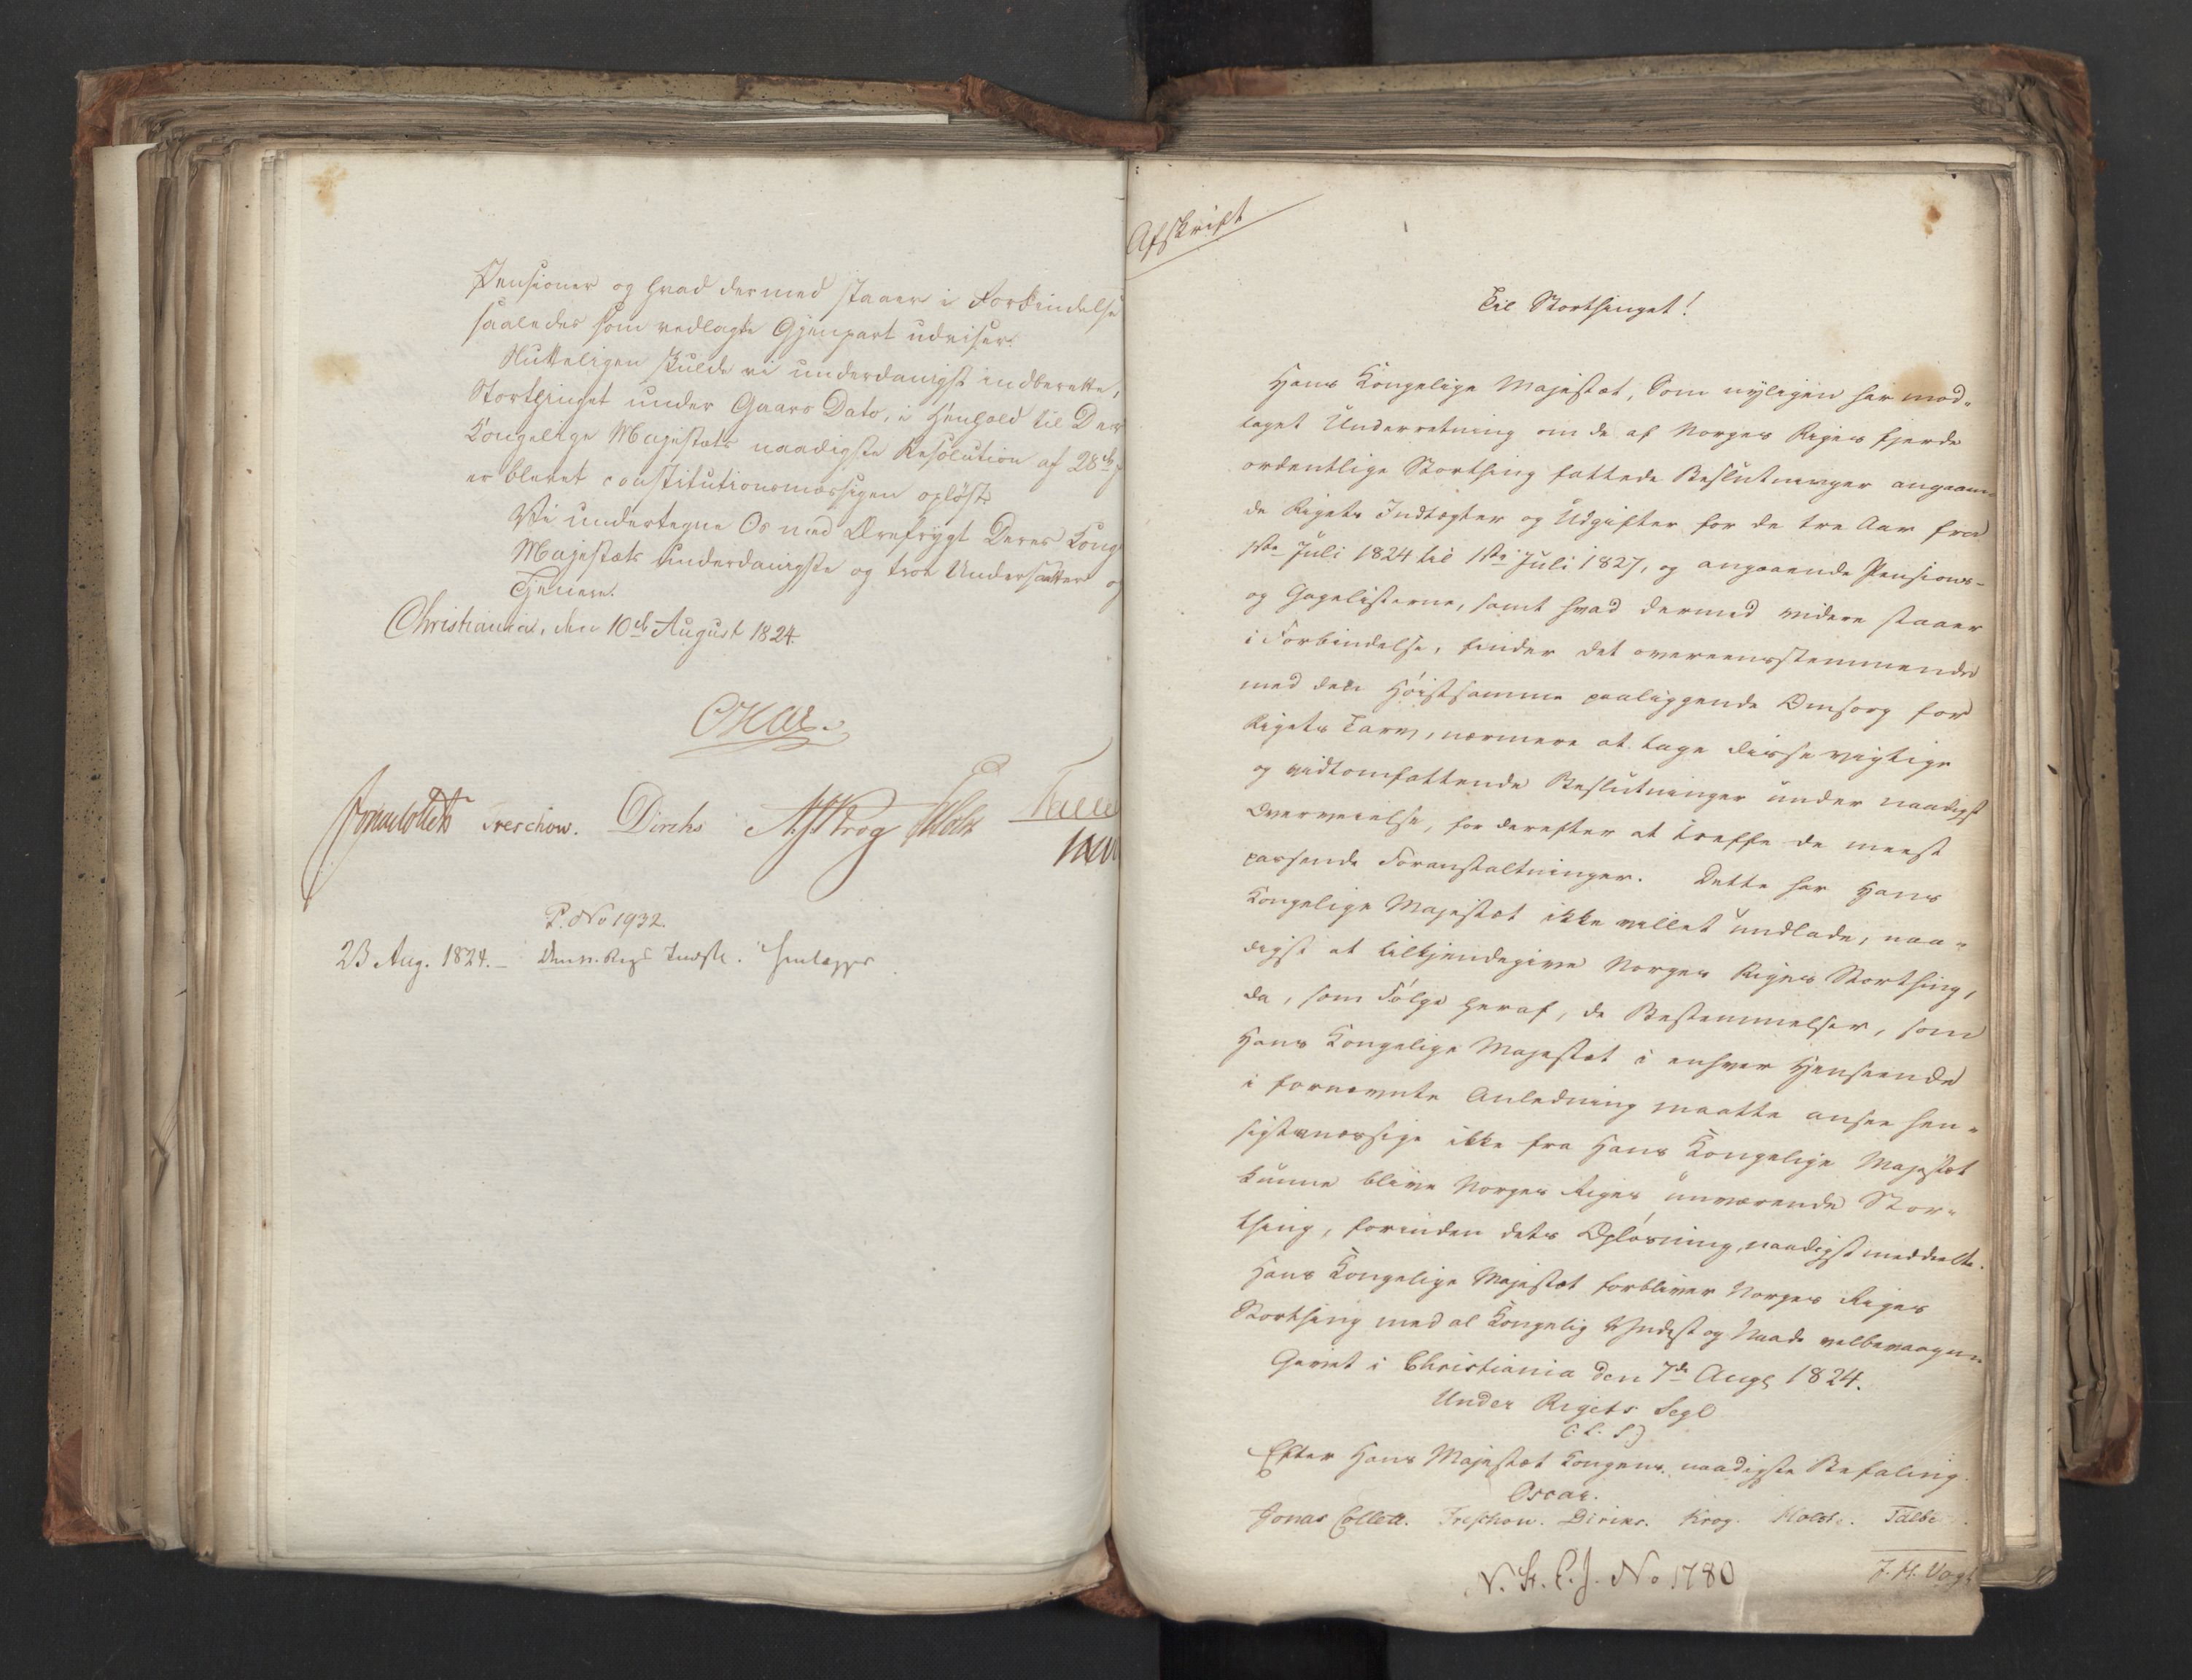 Pensioner og hvad dermed staaer i Forbindelse
saaledes som vedlagte Gjenpart udviser.
Slutteligen skulde vi underdanigst indberette,
Storthinget under Gaars Dato, i Henhold til De
Kongelige Majestæts naadigste Resolution af 28de
er blevet constitutionsmæssigen opløst.
Vi undertegne Os med Ærefrygt Deres Kong
Majestæts underdanigste og troe Undersaatter og
Tjenere.
Christiania, den 10de August 1824.
Oscar.
Jonas Collett Treschow. Diriks Krog Holst
P. No 1932.
23 Aug. 1824. – Norske Regs Indst. Henlægges
Afskrift
Til Storthinget!
Hans Kongelige Majestæt, som nyligen har mod-
taget Underretning om de af Norges Riges fjerde
ordentlige Storthing fattede Beslutninger angaaen-
de Rigets Indtægter og Udgifter for de tre Aar fra
1ste Juli 1824 til 1ste Juli 1827, og angaaende Pensions-
og Gagelisterne, samt hvad dermed videre staaer
i Forbindelse, finder det overeensstemmende
med den Høistsamme paaliggende Omsorg for
Rigets Tarv, nærmere at tage disse vigtige
og vidtomfattende Beslutninger under naadigst
Overveielse, for derefter at træffe de meest
passende Foranstaltninger. Dette har Hans
Kongelige Majestæt ikke villet undlade, naa-
digst at tilkjendegive Norges Riges Storthing,
da, som Følge heraf, de Bestemmelser, som
Hans Kongelige Majestæt i enhver Henseende
i fornævnte Anledning maatte ansee hen-
sigtsmæssige ikke fra Hans Kongelige Majestæt
kunne blive Norges Riges nuværende Stor-
thing, forinden dets Opløsning, naadigst meddeelte.
Hans Kongelige Majestæt forbliver Norges Riges
Storthing med al Kongelig Yndest og Naade velbevaagen
Givet i Christiania den 7de Augs 1824.
Under Rigets Segl
(: L. S.)
Efter Hans Majestæt Kongens naadigste Befaling.
Oscar.
Jonas Collett. Treschow. Diriks. Krog. Holst. Fasting
J. H. Vogt
N. St. C. J. No 1780